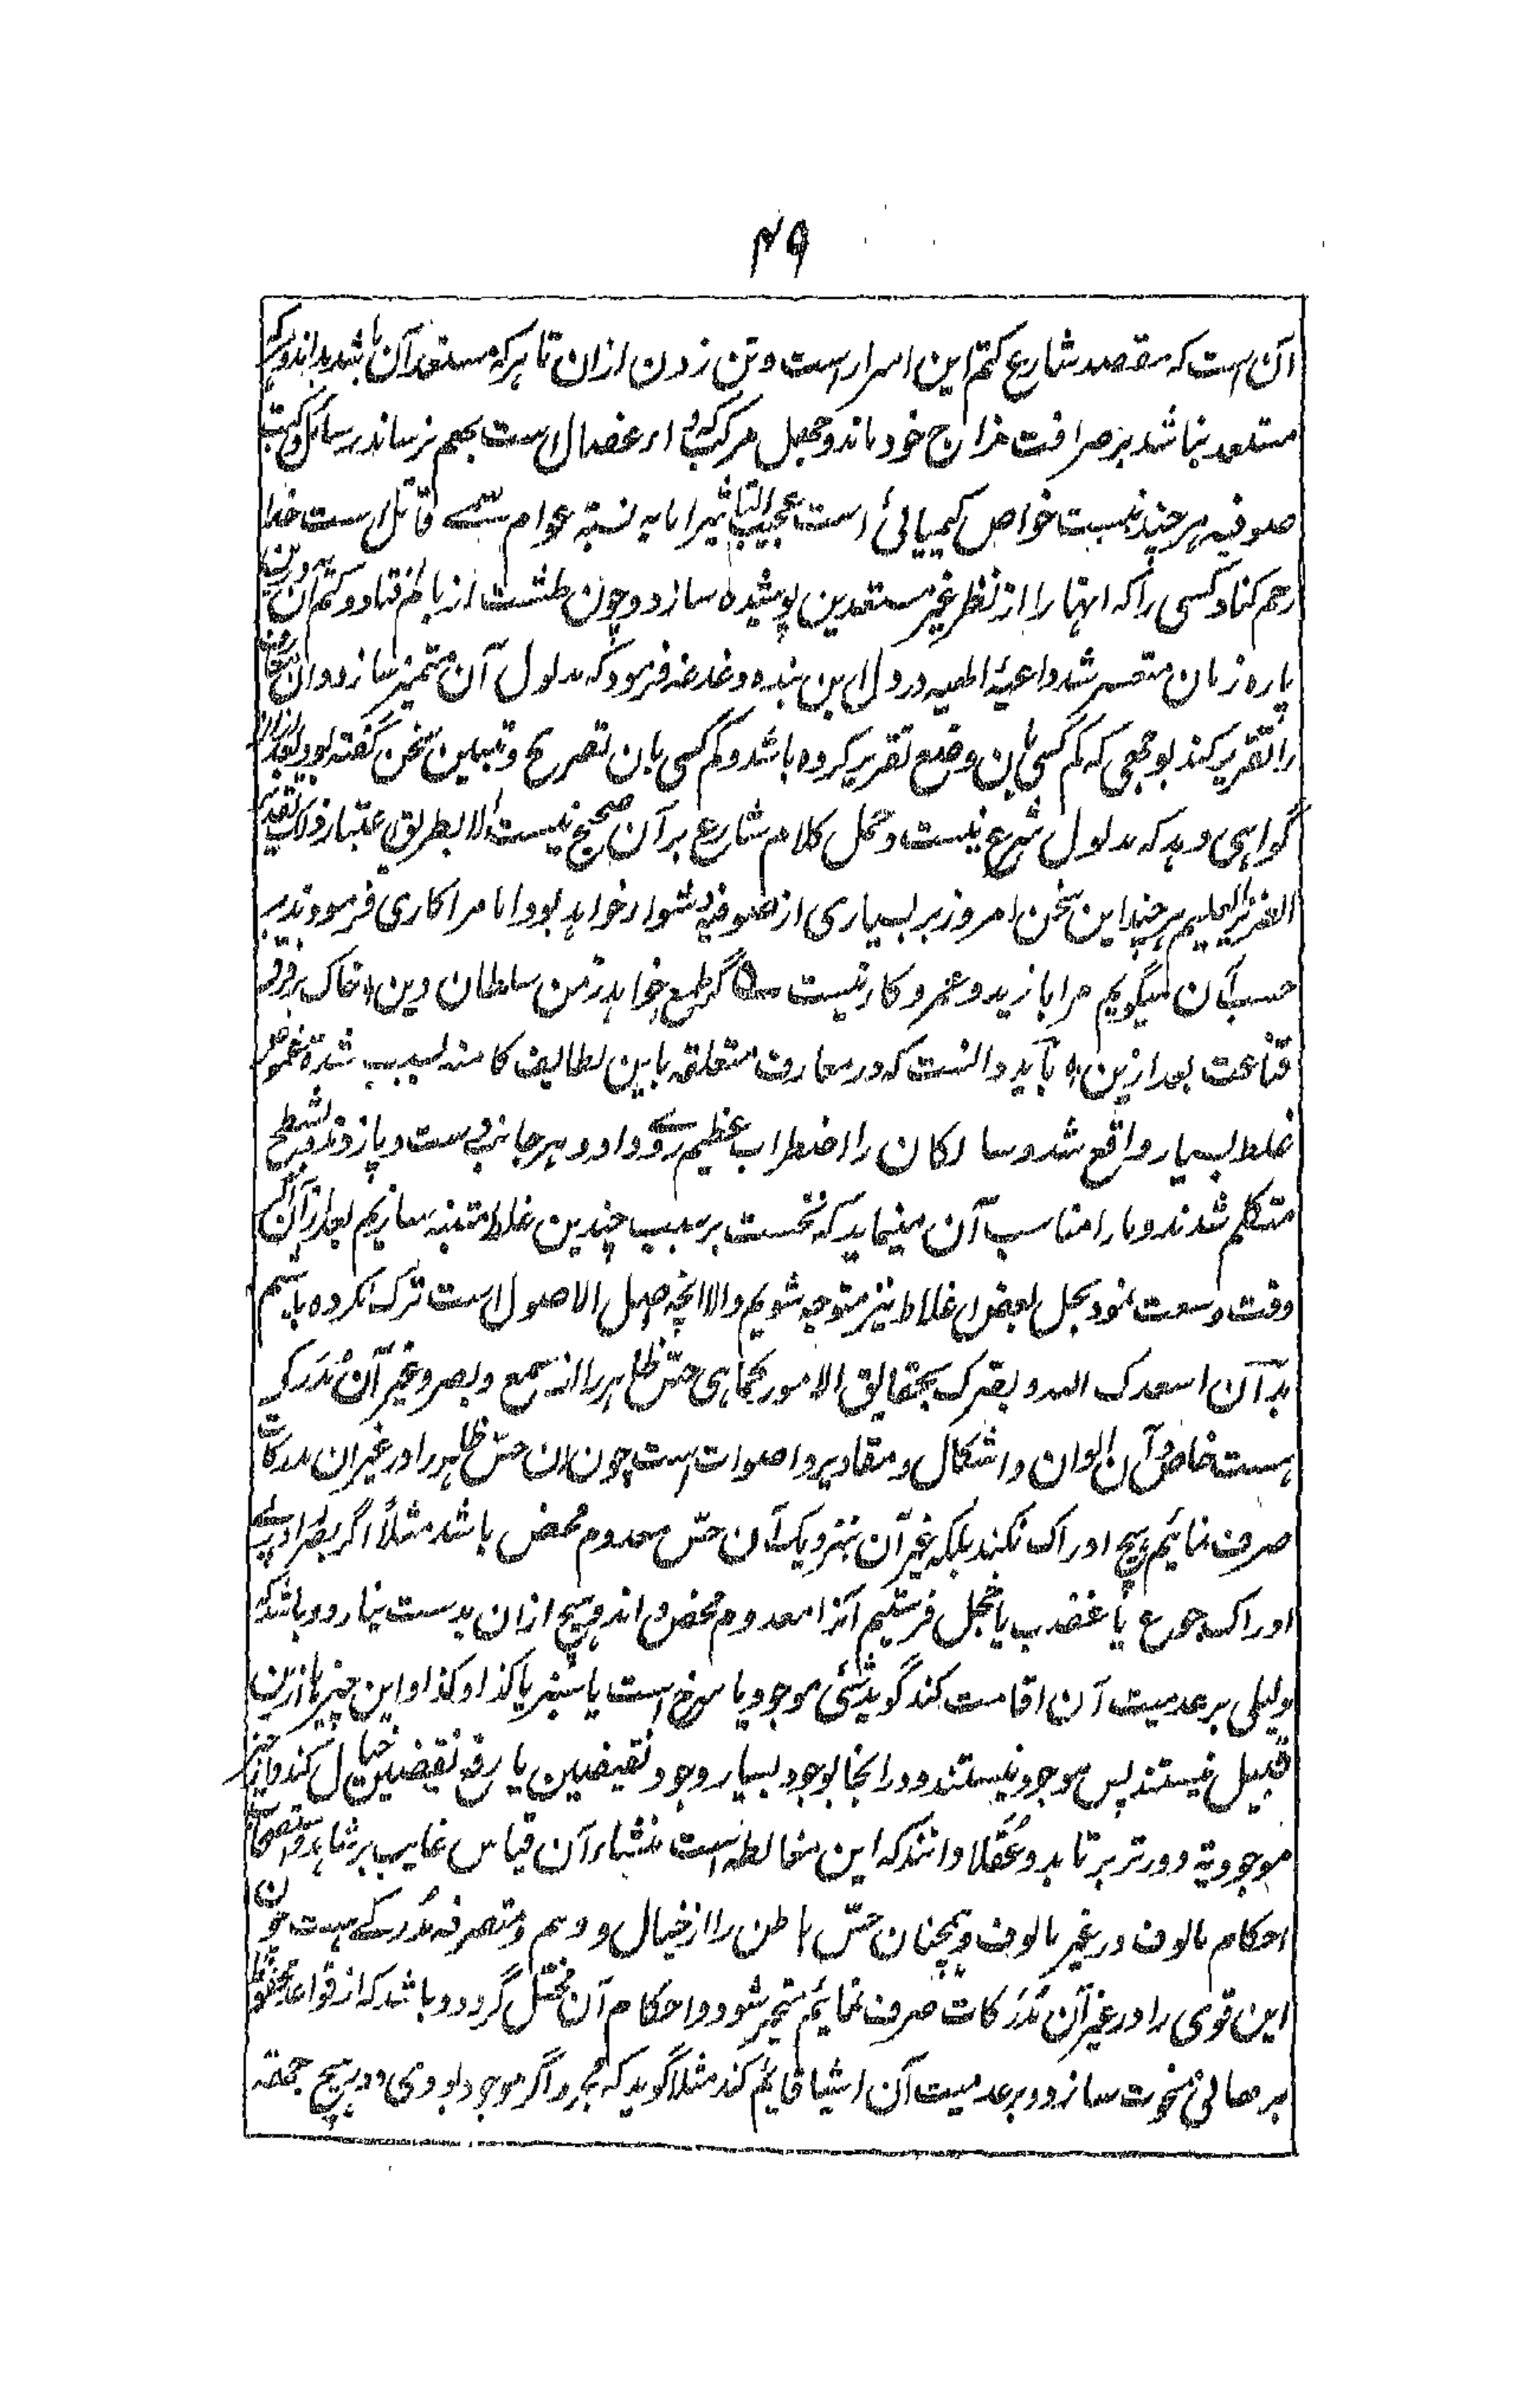 ۴۹
آن است که مقصد شارع کتم این اسرار است و تن زدن ازان تا هر که مستعد آن باشد بداند و هر که
مستعد نباشد بر صرافت مزاج خود ماند و جهل مرکب که داء عضال است بهم نرساند رسائل و کتب
صوفیه هر چند نسبت خواص کیمیائی است عجیب التاثیر اما به نسبة عوام سمے قاتل است خدا
رحم کناد کسی را که انها را از نظر غیر مستعدین پوشیده سازد و چون طشت از بام فتاد و کتم آن درین
پاره زمان متعسر شد داعیۀ الهیه در دل این بنده دغدغه فرمود که مدلول آن متمیز سازد و ان سخنان
را تقریر کند بوجهی که کم کسی بان وضع تقریر کرده باشد و کم کسی بان تصریح و تبیین سخن گفته بود بعد ازان
گواهی دهد که مدلول شرع نیست و حمل کلام شارع بر آن صحیح نیست الا بطریق اعتبار ذلک تقدیر
العزیز العلیم هر چند این سخن امروز بر بسیاری از صوفیه دشوار خواهد بود اما مرا کاری فرموده‌اند بر
حسب آن میگویم مرا با زید و عمرو کار نیست ؎ گر طمع خواهد ز من سلطان دین، خاک بر فرق
قناعت بعد ازین، باید دانست که در معارف متعلقه باین لطایف کامنه بسبب شدة غموض
غلط بسیار واقع شد و سالکان را اضطراب عظیم روے داد و هر جانب دست و پا زدند و بشطح
متکلم شدند و ما را مناسب آن مینماید که نخست بر سبب چندین غلط متنبه سازیم بعد ازان اگر
وقت وسعت نمود بحل بعض اغلاط نیز متوجه شویم والا انچه اصل الاصول است ترک نکرده باشیم
بدآن اسعدک الله و بصرک بحقایق الامور کماهی حسّ ظاهر را از سمع و بصر و غیر آن مُدرَکی
هست خاص و آن الوان و اشکال و مقادیر و اصوات است چون ان حسّ ظاهر را در غیر ان مدرکات
صرف نمائیم هیچ ادراک نکند بلکه غیر آن نزدیک آن حسّ معدوم محض باشد مثلاً اگر بصر را در پے
ادراک جوع یا غضب یا خجل فرستیم آنرا معدوم محض داند و هیچ ازان بدست نیارد و باشد که
دلیلی بر عدمیت آن اقامت کند گوید شئ موجود یا سرخ است یا سبز یا کذا و کذا و این چیزها ازین
قبیل نیستند پس موجود نیستند و در انجا بوجود بسیار وجود نقیضین یا رفع نقیضین خیال کند و از حیز
موجودیة دورتر برتابد و عُقلا دانند که این مغالطه است منشاء آن قیاس غایب بر شاهد و استصحاب
احکام مالوف در غیر مالوف و همچنان حسّ باطن را از خیال و وهم و متصرفه مُدرَکے هست چون
این قوی را در غیر آن مُدرَکات صرف نمائیم متحیر شود و احکام آن مختل گردد و باشد که از قواعد محفوظه
برهانی منحوت سازد و بر عدمیت آن اشیا قایم کند مثلا گوید که مجرد اگر موجود بودی در هیچ جهة